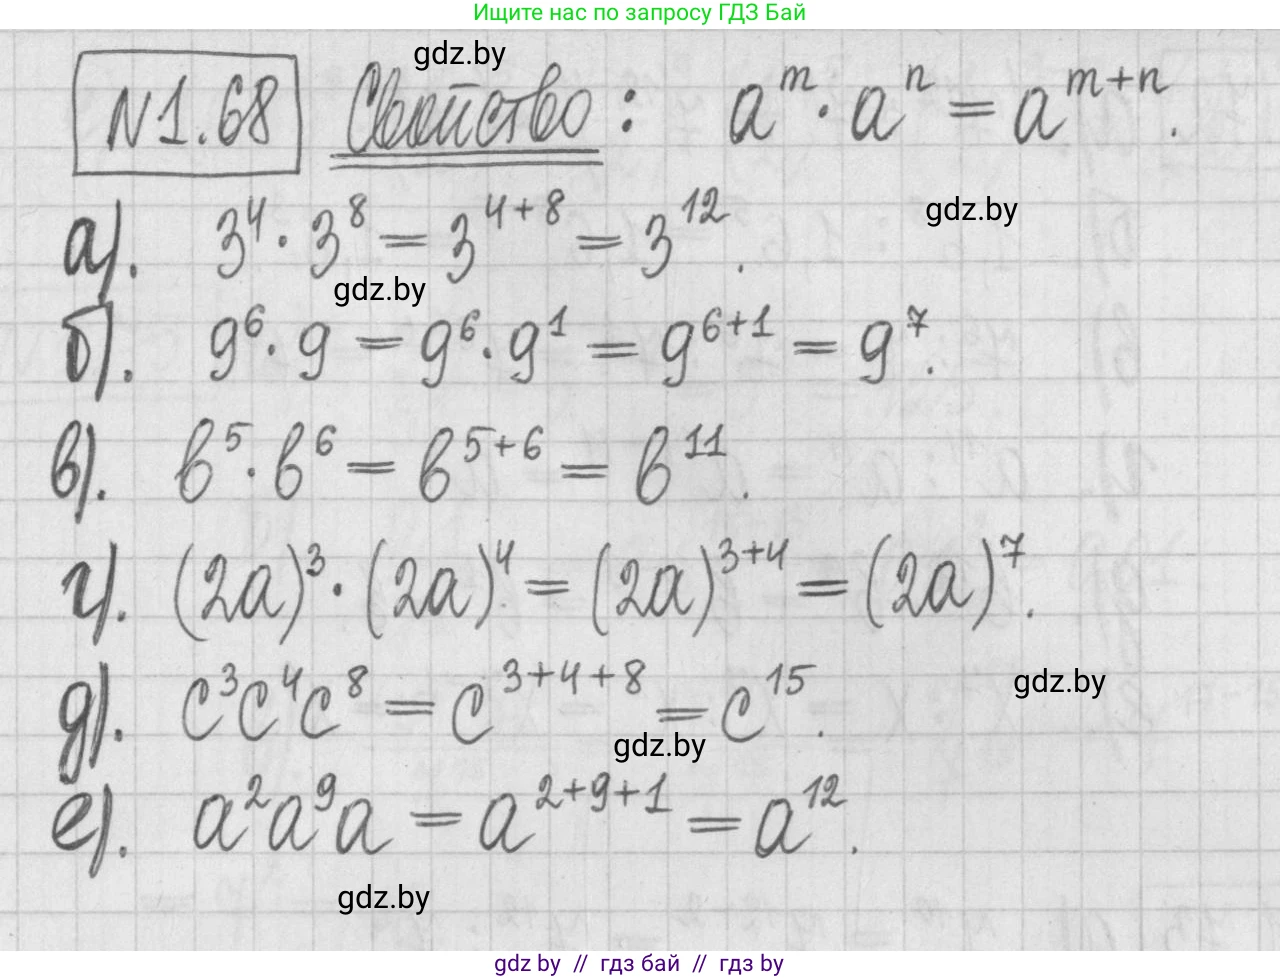 Ищите нас по запросу ГДЗ Бай
gdz.by
N1.68 Свойство: a^m · a^n = a^{m+n}.
gdz.by
а). 3^4 · 3^8 = 3^{4+8} = 3^{12}.
gdz.by
б). 9^6 · 9 = 9^6 · 9^1 = 9^{6+1} = 9^7.
в). b^5 · b^6 = b^{5+6} = b^{11}.
г). (2a)^3 · (2a)^4 = (2a)^{3+4} = (2a)^7.
д). c^3c^4c^8 = c^{3+4+8} = c^{15}.
gdz.by
gdz.by
е). a^2a^9a = a^{2+9+1} = a^{12}.
gdz.by
gdz by // гдз бай // гдз by